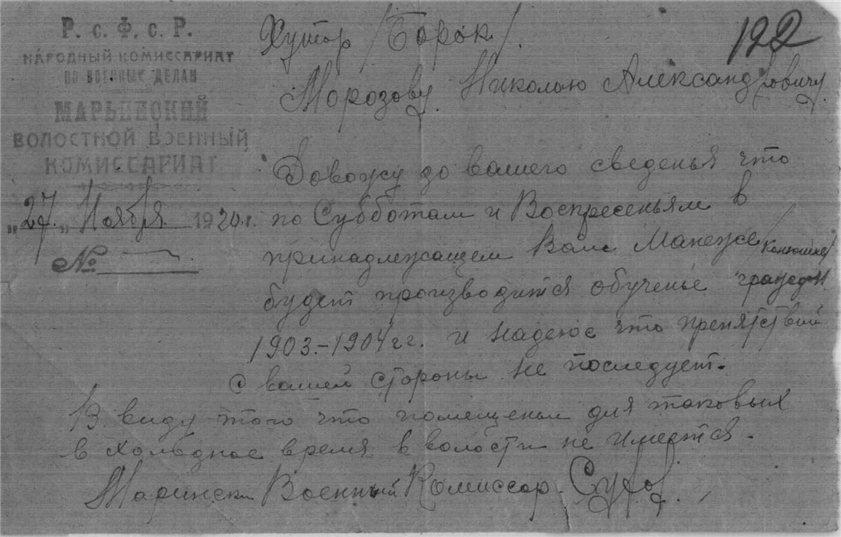 Р. с. Ф. с. Р.
НАРОДНЫЙ КОМИССАРИАТ
ПО ВОЕННЫМ ДЕЛАМ
МАРЬИНСКИЙ
ВОЛОСТНОЙ ВОЕННЫЙ
КОМИССАРИАТ
„27„ Ноября 1920 г.
№
122
Хутор /Борок/
Морозову Николаю Александровичу.
Довожу до вашего сведенья что
по Субботам и Воскресеньям в
принадлежащем Вам Манеже /конюшне/
будет производится обученье граждан
1903.-1904 г.г. и надеюс что препятствий
с вашей стороны не последует.
В виду того что помещенья для таковых
в холодное время в волости не имеется.
Марински Военный Комиссар